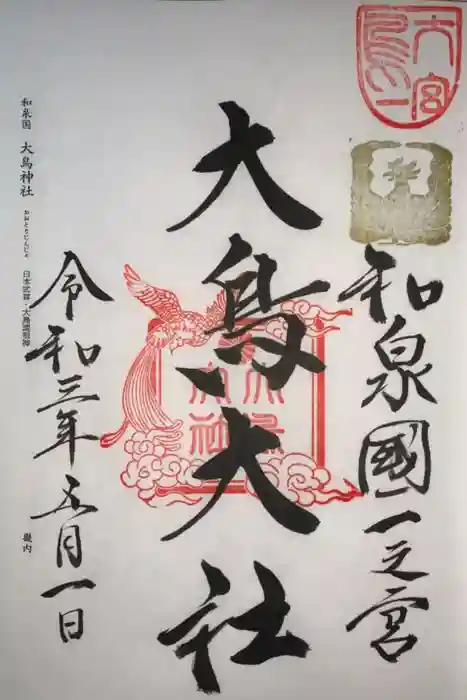 和泉國一之宮
大鳥大社
令和三年五月一日
和泉国 大鳥神社 おおとりじんじゃ 日本武尊・大鳥連祖神 畿内